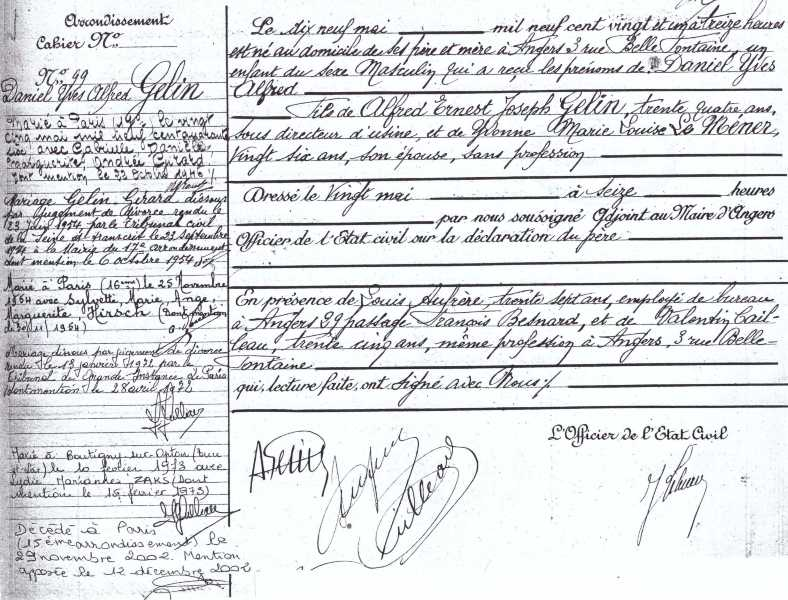 Arrondissement
Cahier No
No 99
Daniel Yves Alfred Gelin
Marié à Paris le vingt
cinq mai mil neuf cent quarante
six avec Gabrielle Danièle
Marguerite Andrée Girard
Dont mention le 22 Octobre 1946
Mariage Gelin Girard dissous
par jugement de divorce rendu le
23 Juin 1954 par le tribunal civil
de la Seine et transcrit le 22 Septembre
1954 à la Mairie du 17e arrondissement
dont mention le 6 octobre 1954
Marié à Paris (16eme) le 25 Novembre
1954 avec Sylvette, Marie, Ange
Marguerite Hirsch (Dont mention
1954)
Mariage dissous par jugement de divorce
rendu le 13 janvier 1972 par le
tribunal de Grande Instance de Paris
dont mention le 28 avril 1972
Marié à Boutigny sur Opton (Eure
et Loir) le 10 février 1973 avec
Lydie Marianne ZAKS (Dont
mention le 15 février 1973)
Décédé à Paris
(15ème arrondissement) le
29 novembre 2002. Mention
apposée le 12 décembre 2002
Le dix neuf mai mil neuf cent vingt et un à treize heures
est né au domicile de ses père et mère à Angers 3 rue Belle Fontaine, un
enfant du sexe Masculin qui a reçu les prénoms de Daniel Yves
Alfred
Fils de Alfred Ernest Joseph Gelin, trente quatre ans,
sous directeur d'usine, et de Yvonne Marie Louise Le Méner,
vingt six ans, son épouse, sans profession
Dressé le Vingt mai à seize heures
par nous soussigné Adjoint au Maire d'Angers
Officier de l'Etat civil sur la déclaration du père
En présence de Louis Aufrère, trente sept ans, employé de bureau
à Angers 39 passage François Besnard, et de Valentin Cail-
leau, trente cinq ans, même profession à Angers, 3 rue Belle-
fontaine
qui, lecture faite, ont signé avec Nous
L'Officier de l'Etat Civil